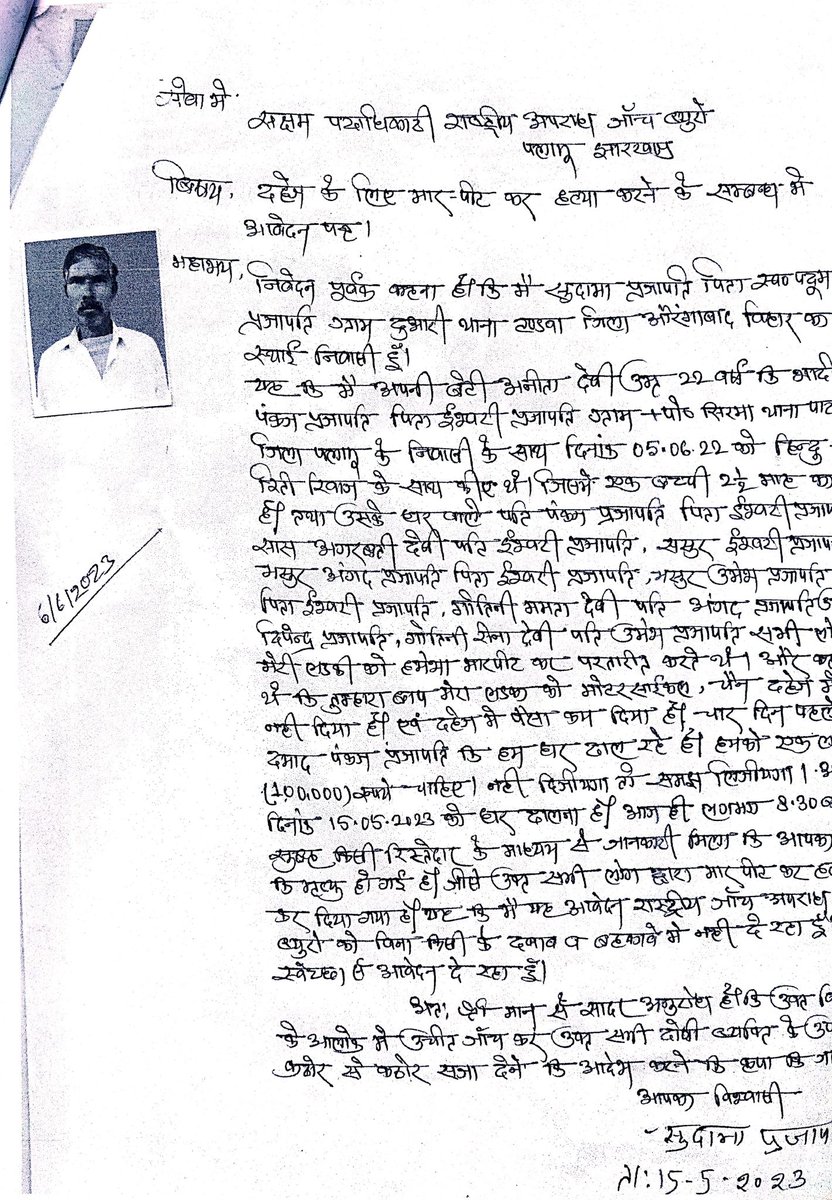 सेवा मे
सक्षम पदाधिकारी राष्ट्रीय अपराध जाँच ब्युरो
पलामू झारखण्ड
बिषय, दहेज के लिए मार-पीट कर हत्या करने के सम्बन्ध मे
आवेदन पत्र।
महाशय,
निवेदन पूर्वक कहना है कि मै सुदामा प्रजापति पिता स्व०
प्रजापति ग्राम दुआरी थाना जिला औरंगाबाद बिहार का
स्थाई निवासी हूँ।
यह कि मै अपनी बेटी अनीता देवी उम्र 22 वर्ष कि शादी
पंकज प्रजापति पिता ईश्वरी प्रजापति ग्राम +पो० सिरमा थाना
जिला पलामू के निवासी के साथ दिनांक 05.06.22 को हिन्दु
रिती रिवाज के साथ कीए थे। जिसमे एक बच्ची 2½ माह का
है। तथा उसके घर वाले पति पंकज प्रजापति पिता ईश्वरी
सास अगरबती देवी पति ईश्वरी प्रजापति, ससुर ईश्वरी
भसुर अंगद प्रजापति पिता ईश्वरी प्रजापति, भसुर उमेश प्रजापति
पिता ईश्वरी प्रजापति, गोतिनी ममता देवी पति अंगद प्रजापति
प्रजापति, गोतिनी देवी पति उमेश प्रजापति सभी
मेरी लडकी को हमेशा मारपीट कर परतारीत करते थे। और
थे कि तुम्हारा बाप मेरा लडका को मोटरसाईकल, चैन दहेज मे
नही दिया है। एवं दहेज मे पैसा कम दिया है। चार दिन पहले
दमाद पंकज प्रजापति कि हम घर ढाल रहे है। हमको एक
(1,00,000) रूपये चाहिए। नही दिजीयेगा तो समझ लिजीयेगा।
दिनांक 15.05.2023 को घर ढालना है। आज ही लगभग 8.30
सुबह किसी रिस्तेदार के माध्यम से जानकारी मिला कि आपका
कि मृत्यु हो गई है। जीसे उक्त सभी लोग द्वारा मार पीट कर
कर दिया गया है। यह कि मै यह आवेदन राष्ट्रीय जाँच अपराध
ब्युरो को बिना किसी के दबाव व बहकावे मे नही दे रहा हूँ
स्वेच्छा से आवेदन दे रहा हूँ।
अतः श्री मान से सादर अनुरोध है कि उक्त
के आलोक मे उचीत जाँच कर उक्त सभी दोषी व्यक्ति के
कठोर से कठोर सजा देने कि आदेश करने कि कृपा कि
आपका विश्वासी
सुदामा
ता: 15-5-2023
6/6/2023